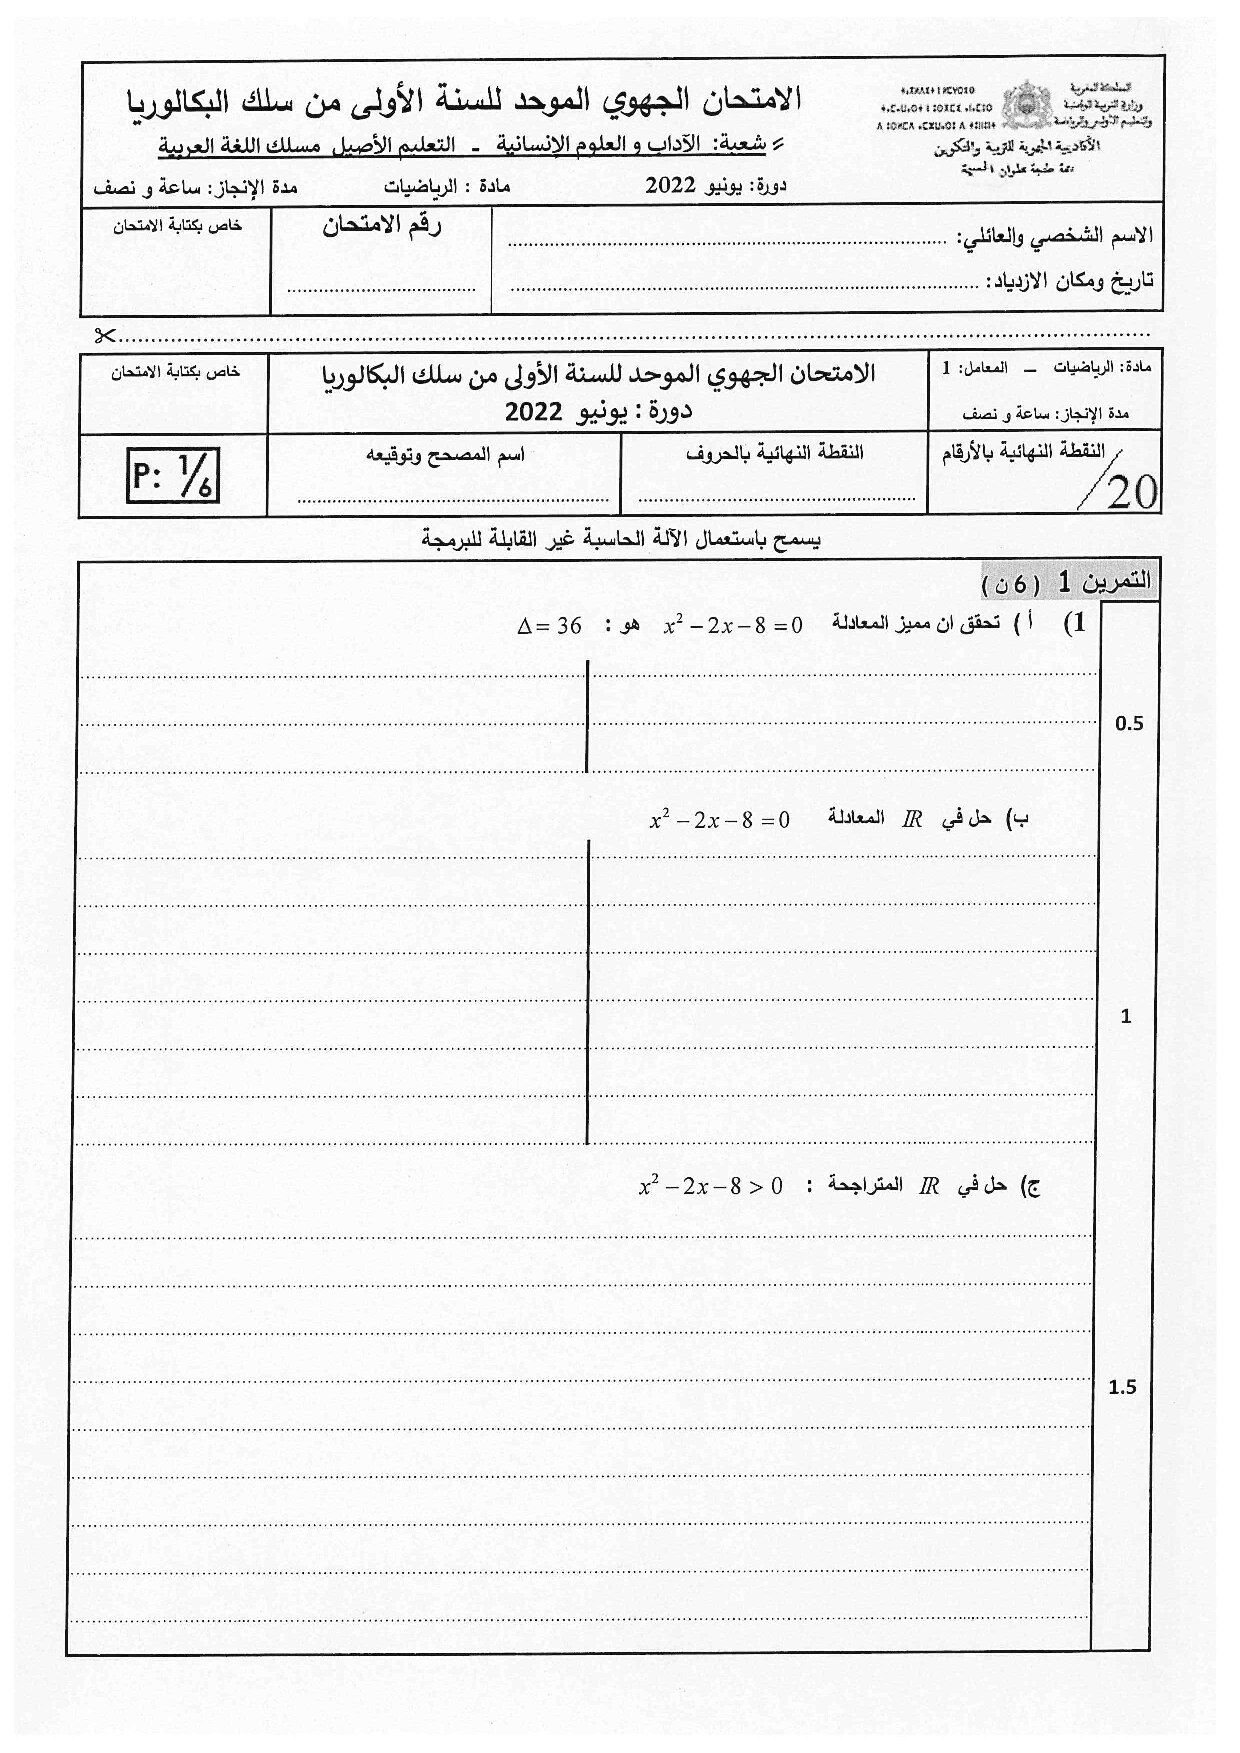 المملكة المغربية
وزارة التربية الوطنية
والتعليم الأولي والرياضة
الأكاديمية الجهوية للتربية والتكوين
جهة طنجة تطوان الحسيمة
الامتحان الجهوي الموحد للسنة الأولى من سلك البكالوريا
شعبة: الآداب و العلوم الإنسانية - التعليم الأصيل مسلك اللغة العربية
دورة: يونيو 2022 مادة : الرياضيات مدة الإنجاز: ساعة و نصف
الاسم الشخصي والعائلي:
تاريخ ومكان الازدياد:
رقم الامتحان
خاص بكتابة الامتحان
مادة: الرياضيات – المعامل: 1
مدة الإنجاز: ساعة و نصف
الامتحان الجهوي الموحد للسنة الأولى من سلك البكالوريا
دورة : يونيو 2022
خاص بكتابة الامتحان
النقطة النهائية بالأرقام
/20
النقطة النهائية بالحروف
اسم المصحح وتوقيعه
P: 1/6
يسمح باستعمال الآلة الحاسبة غير القابلة للبرمجة
التمرين 1 (6 ن)
1) أ ) تحقق ان مميز المعادلة x² − 2x − 8 = 0 هو : Δ = 36
0.5
ب) حل في IR المعادلة x² − 2x − 8 = 0
1
ج) حل في IR المتراجحة : x² − 2x − 8 > 0
1.5